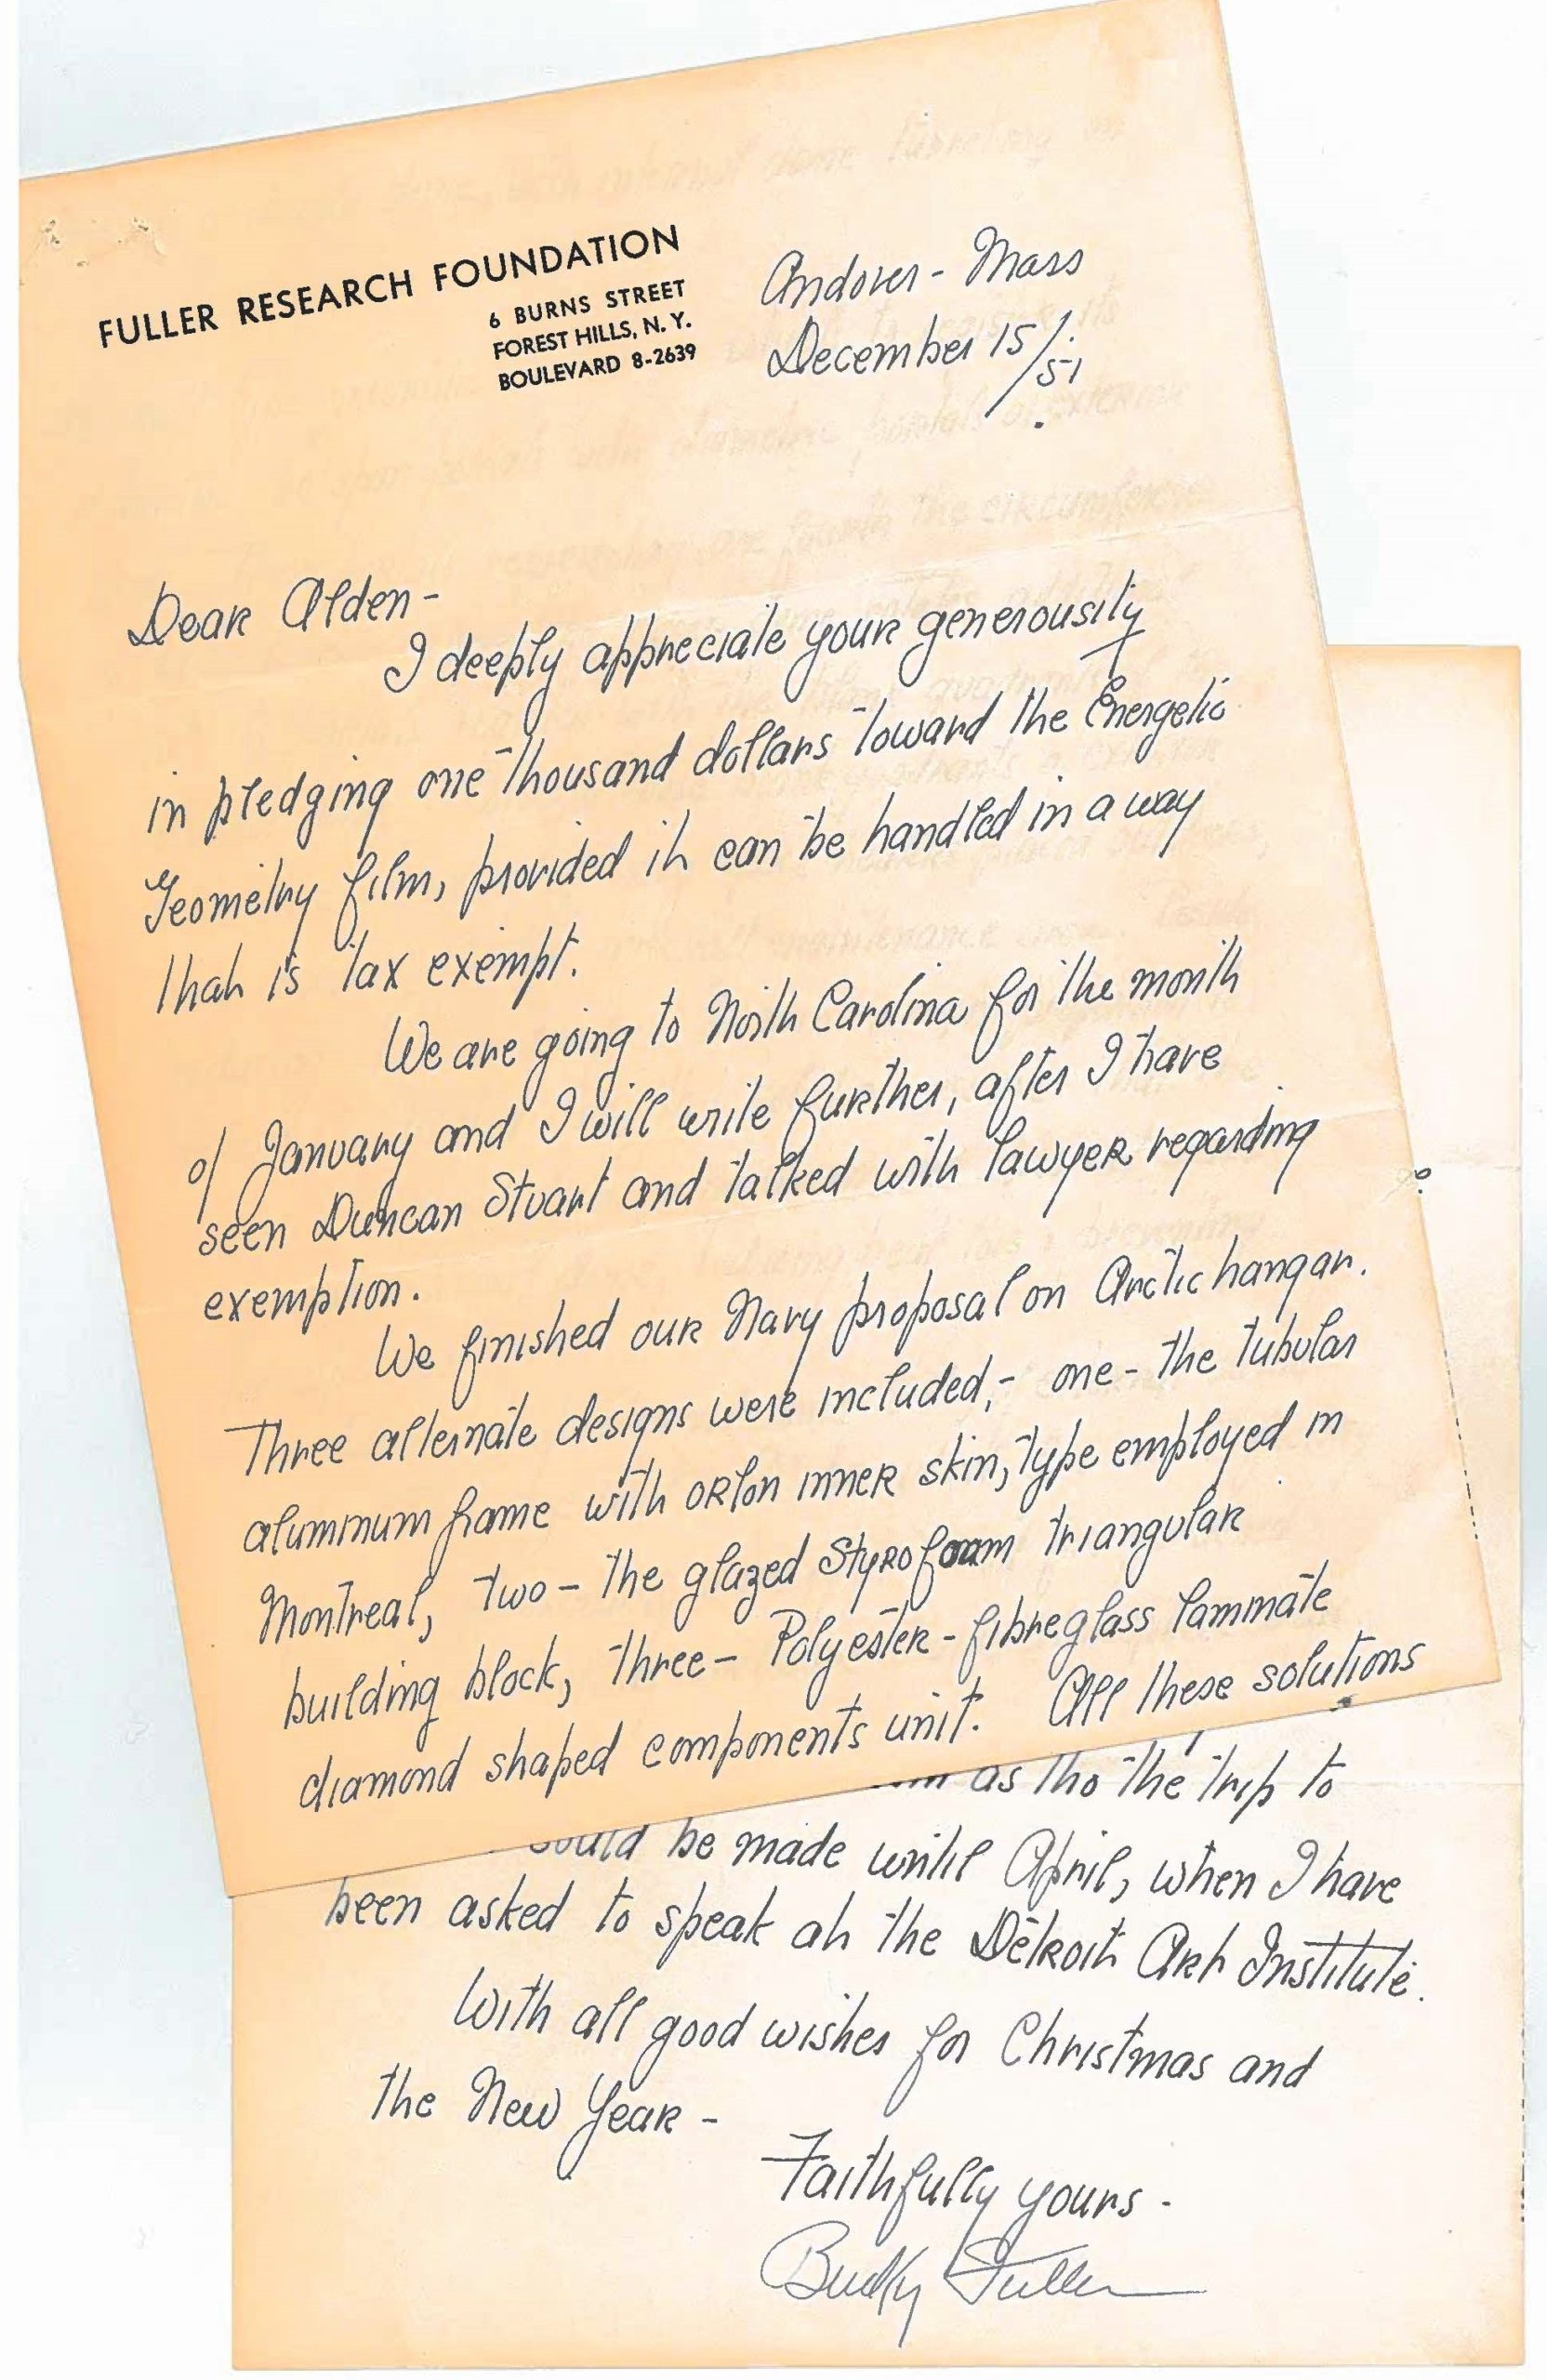 FULLER RESEARCH FOUNDATION
6 BURNS STREET
FOREST HILLS, N. Y.
BOULEVARD 8-2639
Andover - Mass
December 15/51.
Dear Alden-
I deeply appreciate your generousity
in pledging one thousand dollars toward the Energetic
Geometry film, provided it can be handled in a way
that is tax exempt.
We are going to North Carolina for the month
of January and I will write further, after I have
seen Duncan Stuart and talked with lawyer regarding
exemption.
We finished our Navy proposal on Arctic hangar.
Three alternate designs were included,- one - the tubular
aluminum frame with orlon inner skin, type employed in
Montreal, two - the glazed Styrofoam triangular
building block, three - Polyester - fibreglass laminate
diamond shaped components unit. All these solutions
as tho the trip to
be made until April, when I have
been asked to speak at the Detroit Art Institute.
With all good wishes for Christmas and
the New Year -
Faithfully yours -
Bucky Fuller